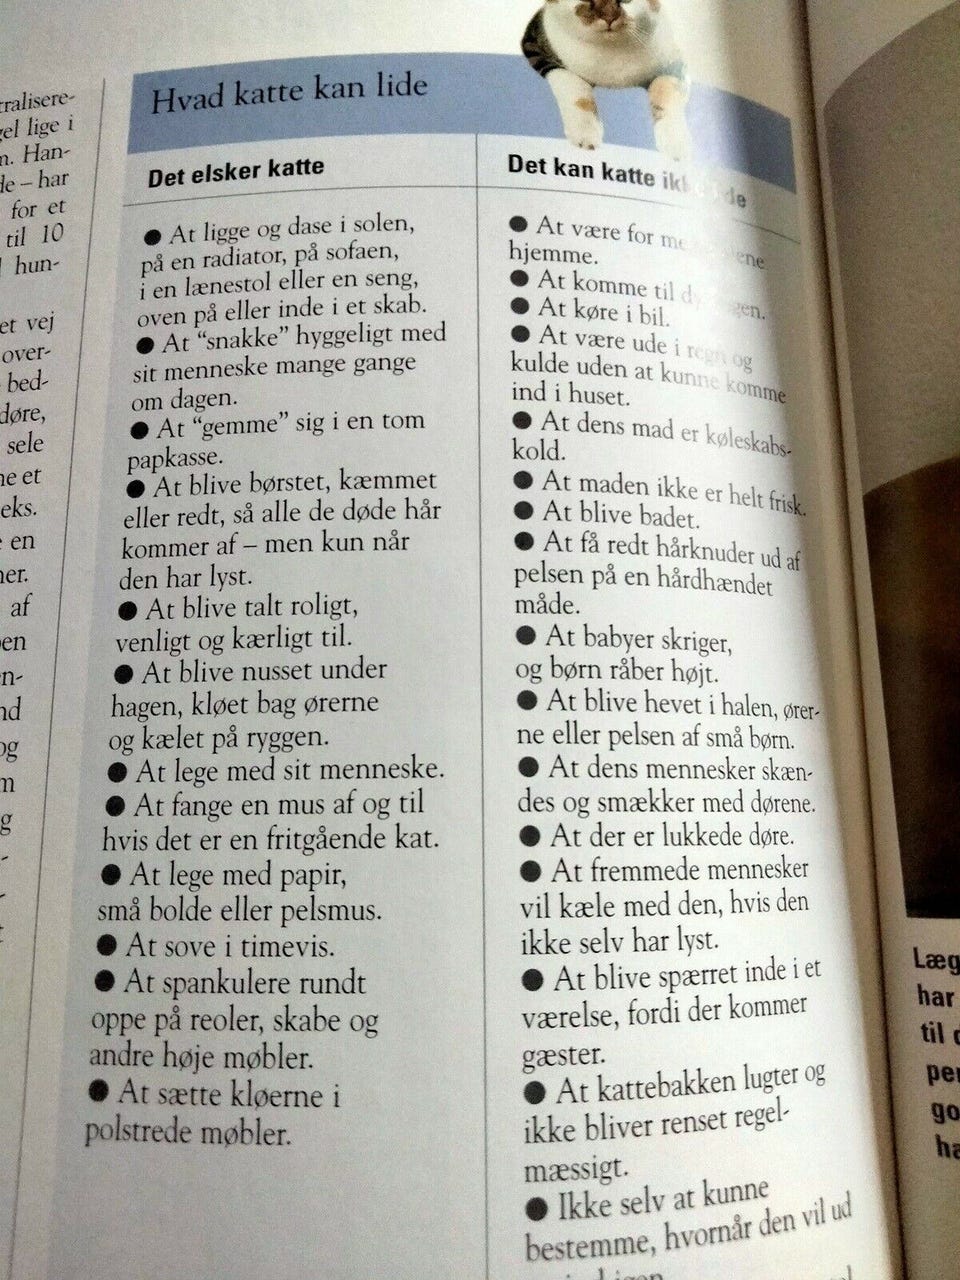 tralisere-
gel lige i
n. Han-
de – har
for et
til 10
hun-
et vej
over-
bed-
døre,
sele
ne et
eks.
en
ner.
af
en
n-
nd
og
m
g
Hvad katte kan lide
Det elsker katte
● At ligge og dase i solen,
på en radiator, på sofaen,
i en lænestol eller en seng,
oven på eller inde i et skab.
● At “snakke” hyggeligt med
sit menneske mange gange
om dagen.
● At “gemme” sig i en tom
papkasse.
● At blive børstet, kæmmet
eller redt, så alle de døde hår
kommer af – men kun når
den har lyst.
● At blive talt roligt,
venligt og kærligt til.
● At blive nusset under
hagen, kløet bag ørerne
og kælet på ryggen.
● At lege med sit menneske.
● At fange en mus af og til
hvis det er en fritgående kat.
● At lege med papir,
små bolde eller pelsmus.
● At sove i timevis.
● At spankulere rundt
oppe på reoler, skabe og
andre høje møbler.
● At sætte kløerne i
polstrede møbler.
Det kan katte ikke lide
● At være for
hjemme.
● At komme til
● At køre i bil.
● At være ude i regn og
kulde uden at kunne komme
ind i huset.
● At dens mad er køleskabs-
kold.
● At maden ikke er helt frisk.
● At blive badet.
● At få redt hårknuder ud af
pelsen på en hårdhændet
måde.
● At babyer skriger,
og børn råber højt.
● At blive hevet i halen, ører-
ne eller pelsen af små børn.
● At dens mennesker skæn-
des og smækker med dørene.
● At der er lukkede døre.
● At fremmede mennesker
vil kæle med den, hvis den
ikke selv har lyst.
● At blive spærret inde i et
værelse, fordi der kommer
gæster.
● At kattebakken lugter og
ikke bliver renset regel-
mæssigt.
● Ikke selv at kunne
bestemme, hvornår den vil ud
Læg
har
til
per
go
ha